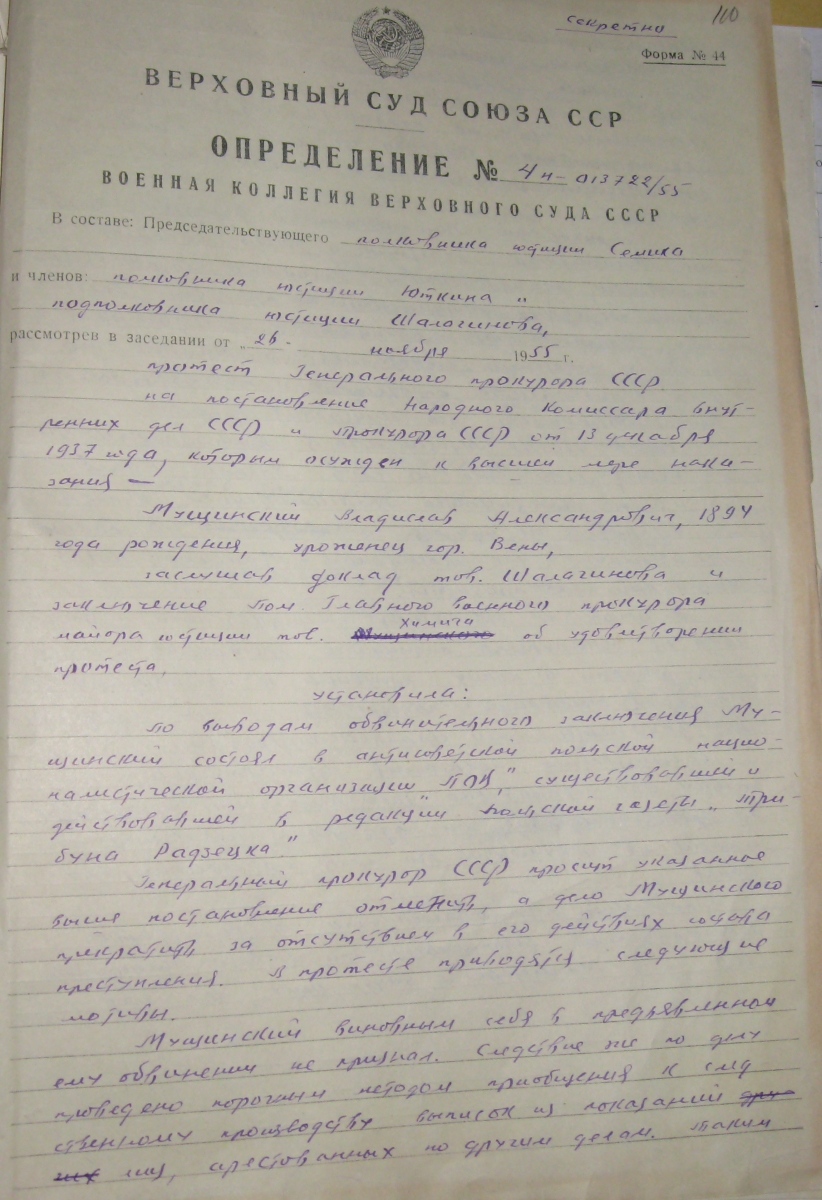 секретно
110
Форма № 44
ВЕРХОВНЫЙ СУД СОЮЗА ССР
ОПРЕДЕЛЕНИЕ № 4н-013722/55
ВОЕННАЯ КОЛЛЕГИЯ ВЕРХОВНОГО СУДА СССР
В составе: Председательствующего полковника юстиции Семика
и членов: полковника юстиции Юткина и
подполковника юстиции Шалагинова,
рассмотрев в заседании от „26" ноября 1955 г.
протест Генерального прокурора СССР
на постановление Народного Комиссара внут-
ренних дел СССР и Прокурора СССР от 13 декабря
1937 года, которым осужден к высшей мере нака-
зания —
Мущинский Владислав Александрович, 1894
года рождения, уроженец гор. Вены,
заслушав доклад тов. Шалагинова и
заключение пом. Главного военного прокурора
майора юстиции тов. Химича об удовлетворении
протеста,
установила:
По выводам обвинительного заключения Му-
щинский состоял в антисоветской польской нацио-
налистической организации „ПОВ", существовавшей и
действовавшей в редакции польской газеты „Три-
буна Радзецка".
Генеральный прокурор СССР просит указанное
выше постановление отменить, а дело Мущинского
прекратить за отсутствием в его действиях состава
преступления. В протесте приводятся следующие
мотивы.
Мущинский виновным себя в предъявленном
ему обвинении не признал. Следствие же по делу
проведено порочным методом приобщения к след
ственному производству выписок из показаний дру-
гих лиц, арестованных по другим делам. Таким